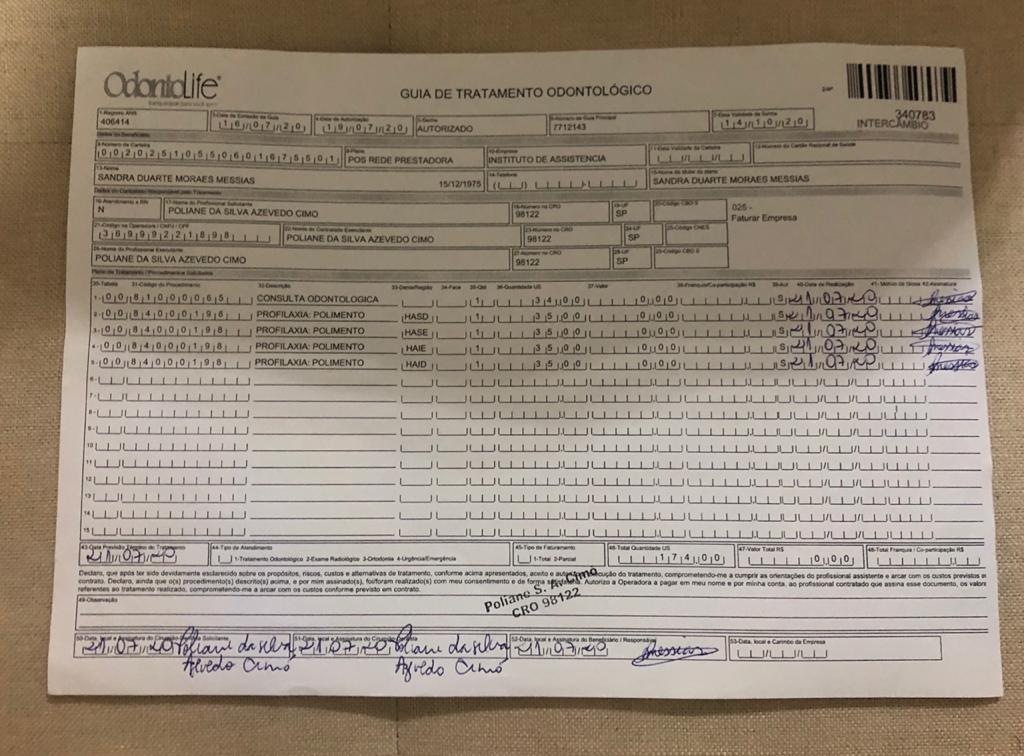 OdontoLife®
GUIA DE TRATAMENTO ODONTOLÓGICO
340783
INTERCÂMBIO
1-Registro ANS
406414
3-Data de Emissão da Guia
16/07/20
4-Data de Autorização
19/07/20
5-Senha
AUTORIZADO
6-Número da Guia Principal
7712143
7-Data Validade da Senha
14/10/20
Dados do Beneficiário
8-Número da Carteira
00202510550601675501
9-Plano
POS REDE PRESTADORA
10-Empresa
INSTITUTO DE ASSISTENCIA
11-Data Validade da Carteira
12-Número do Cartão Nacional de Saúde
13-Nome
SANDRA DUARTE MORAES MESSIAS 15/12/1975
14-Telefone
15-Nome do titular do plano
SANDRA DUARTE MORAES MESSIAS
Dados do Contratado Responsável pelo Tratamento
16-Atendimento a RN
N
17-Nome do Profissional Solicitante
POLIANE DA SILVA AZEVEDO CIMO
18-Número no CRO
98122
19-UF
SP
20-Código CBO S
025 -
Faturar Empresa
21-Código na Operadora / CNPJ / CPF
36999221898
22-Nome do Contratado Executante
POLIANE DA SILVA AZEVEDO CIMO
23-Número no CRO
98122
24-UF
SP
25-Código CNES
26-Nome do Profissional Executante
POLIANE DA SILVA AZEVEDO CIMO
27-Número no CRO
98122
28-UF
SP
29-Código CBO S
Plano de Tratamento / Procedimentos Solicitados
30-Tabela 31-Código do Procedimento 32-Descrição 33-Dente/Região 34-Face 35-Qtd 36-Quantidade US 37-Valor 38-Franquia/Co-participação R$ 39-Aut 40-Data de Realização 41- Motivo da Glosa 42-Assinatura
1- 00 81000065 CONSULTA ODONTOLOGICA 1 34,00 0,00 S 21/07/20
2- 00 84000198 PROFILAXIA: POLIMENTO HASD 1 35,00 0,00 S 21/07/20
3- 00 84000198 PROFILAXIA: POLIMENTO HASE 1 35,00 0,00 S 21/07/20
4- 00 84000198 PROFILAXIA: POLIMENTO HAIE 1 35,00 0,00 S 21/07/20
5- 00 84000198 PROFILAXIA: POLIMENTO HAID 1 35,00 0,00 S 21/07/20
6-
7-
8-
9-
10
11
12
13
14
15
43-Data Previsão Término do Tratamento
21/07/20
44-Tipo de Atendimento
1-Tratamento Odontológico 2-Exame Radiológico 3-Ortodontia 4-Urgência/Emergência
45-Tipo de Faturamento
1-Total 2-Parcial
46-Total Quantidade US
174,00
47-Valor Total R$
0,00
48-Total Franquia / Co-participação R$
Declaro, que após ter sido devidamente esclarecido sobre os propósitos, riscos, custos e alternativas de tratamento, conforme acima apresentados, aceito e autorizo a execução do tratamento, comprometendo-me a cumprir as orientações do profissional assistente e arcar com os custos previstos em
contrato. Declaro, ainda que o(s) procedimento(s) descrito(s) acima, e por mim assinado(s), foi/foram realizado(s) com meu consentimento e de forma satisfatória. Autorizo a Operadora a pagar em meu nome e por minha conta, ao profissional contratado que assina esse documento, os valores
referentes ao tratamento realizado, comprometendo-me a arcar com os custos conforme previsto em contrato.
Poliane S. A. Cimo
CRO 98122
49-Observação
50-Data, local e Assinatura do Cirurgião-Dentista Solicitante
21/07/20 Poliane da Silva
Azevedo Cimó
51-Data, local e Assinatura do Cirurgião-Dentista
21/07/20 Poliane da Silva
Azevedo Cimó
52-Data, local e Assinatura do Beneficiário / Responsável
21/07/20 Messias
53-Data, local e Carimbo da Empresa